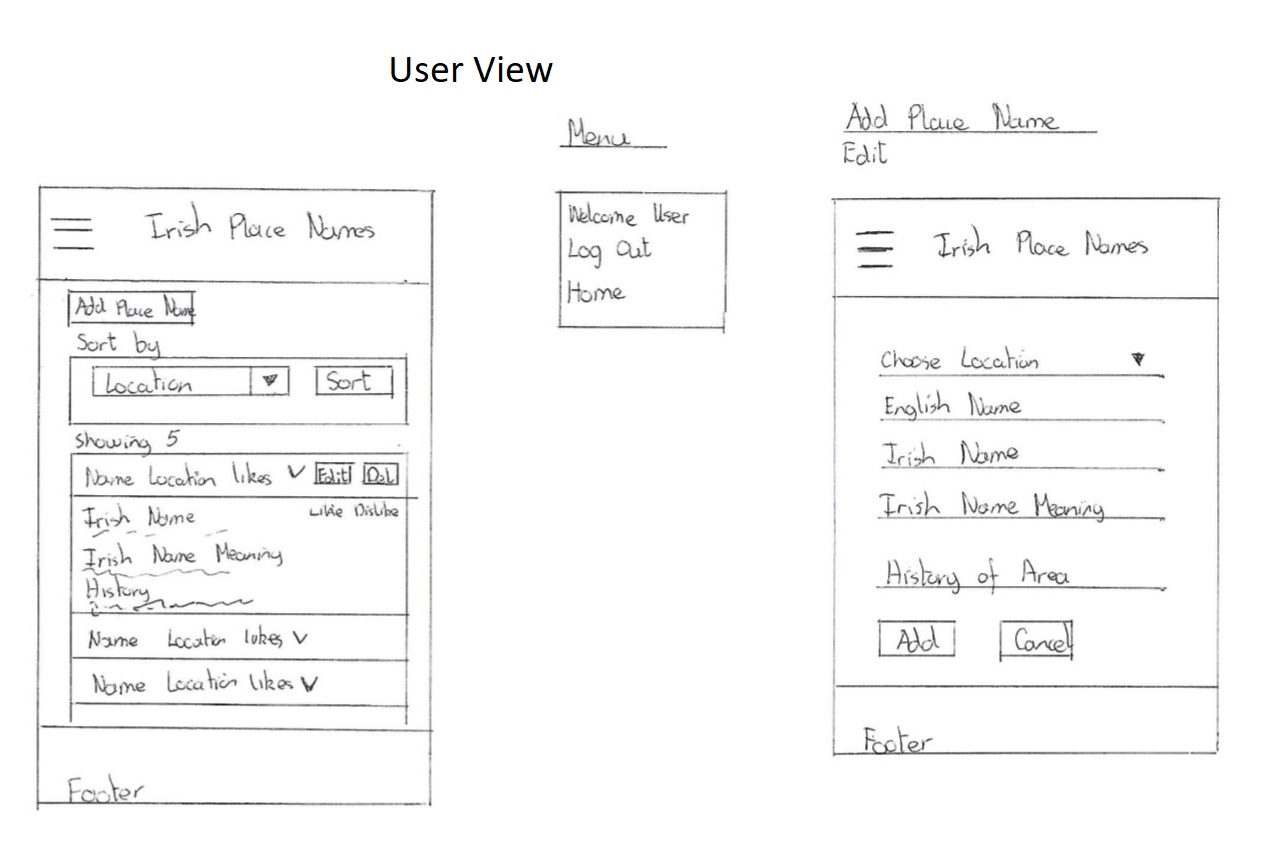 User View
Irish Place Names
Add Place Name
Sort by
Location Sort
Showing 5
Name Location likes Edit Del
Irish Name Like Dislike
Irish Name Meaning
History
Name Location likes
Name Location likes
Footer
Menu
Welcome User
Log Out
Home
Add Place Name
Edit
Irish Place Names
Choose Location
English Name
Irish Name
Irish Name Meaning
History of Area
Add Cancel
Footer